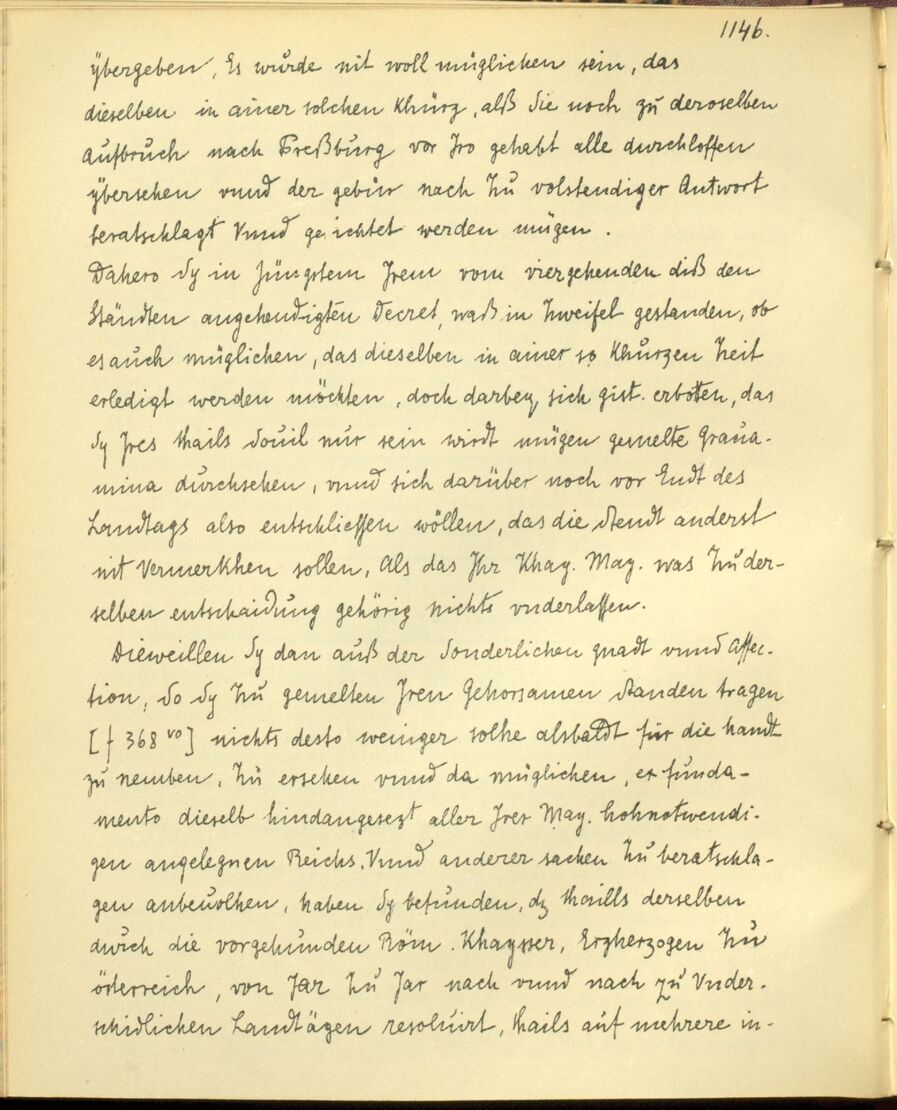 1146.
ÿbergeben, Es wurde nit woll müglichen sein, das
dieselben in ainer solchen Khürz, alß Sie noch zu deroselben
Aufbruch nach Preßburg vor Iro gehabt alle durchloffen
ÿbersehen vnnd der gebür nach Zu volstendiger Antwort
beratschlagt Vnnd gerichtet werden mügen.
Dahero Sy in Jüngstem Irem vom vierzehenden diß den
Ständten angehendigten Decret, waß in Zweifel gestanden, ob
es auch müglichen, das dieselben in ainer so Khurzen Zeit
erledigt werden möchten, doch darbey sich gist. erbotten, das
Sy Ires thails Souil nur sein wirdt mügen gemelte Graua-
mina durchsehen, vnnd sich darüber noch vor Endt des
Landtags also entschliessen wöllen, das die Stendt anderst
nit Vermerkhen sollen, Als das Ihr Khay. May. was Zu der-
selben entschaidung gehörig nichts vnderlassen.
Dieweillen Sy dan auß der Sonderlichen gnadt vnnd Affec-
tion, So Sy Zu gemelten Iren Gehorsamen Standen tragen
[f 368 vo] nichts desto weniger solhe alsbaldt für die handt
zu nemben, Zu ersehen vnnd da müglichen, ex funda-
mento dieselb hindangesezt aller Irer May. hohnotwendi-
gen angelegnen Reichs. Vnnd anderer sachen Zu beratschla-
gen anbeuolhen, haben Sy befunden, dz thaills derselben
durch die vorgehunden Röm. Khaysser, Erzherzogen Zu
österreich, von Jar Zu Jar nach vnnd nach zu Vnder-
schidlichen Landtägen resoluirt, thails auf mehrere in-